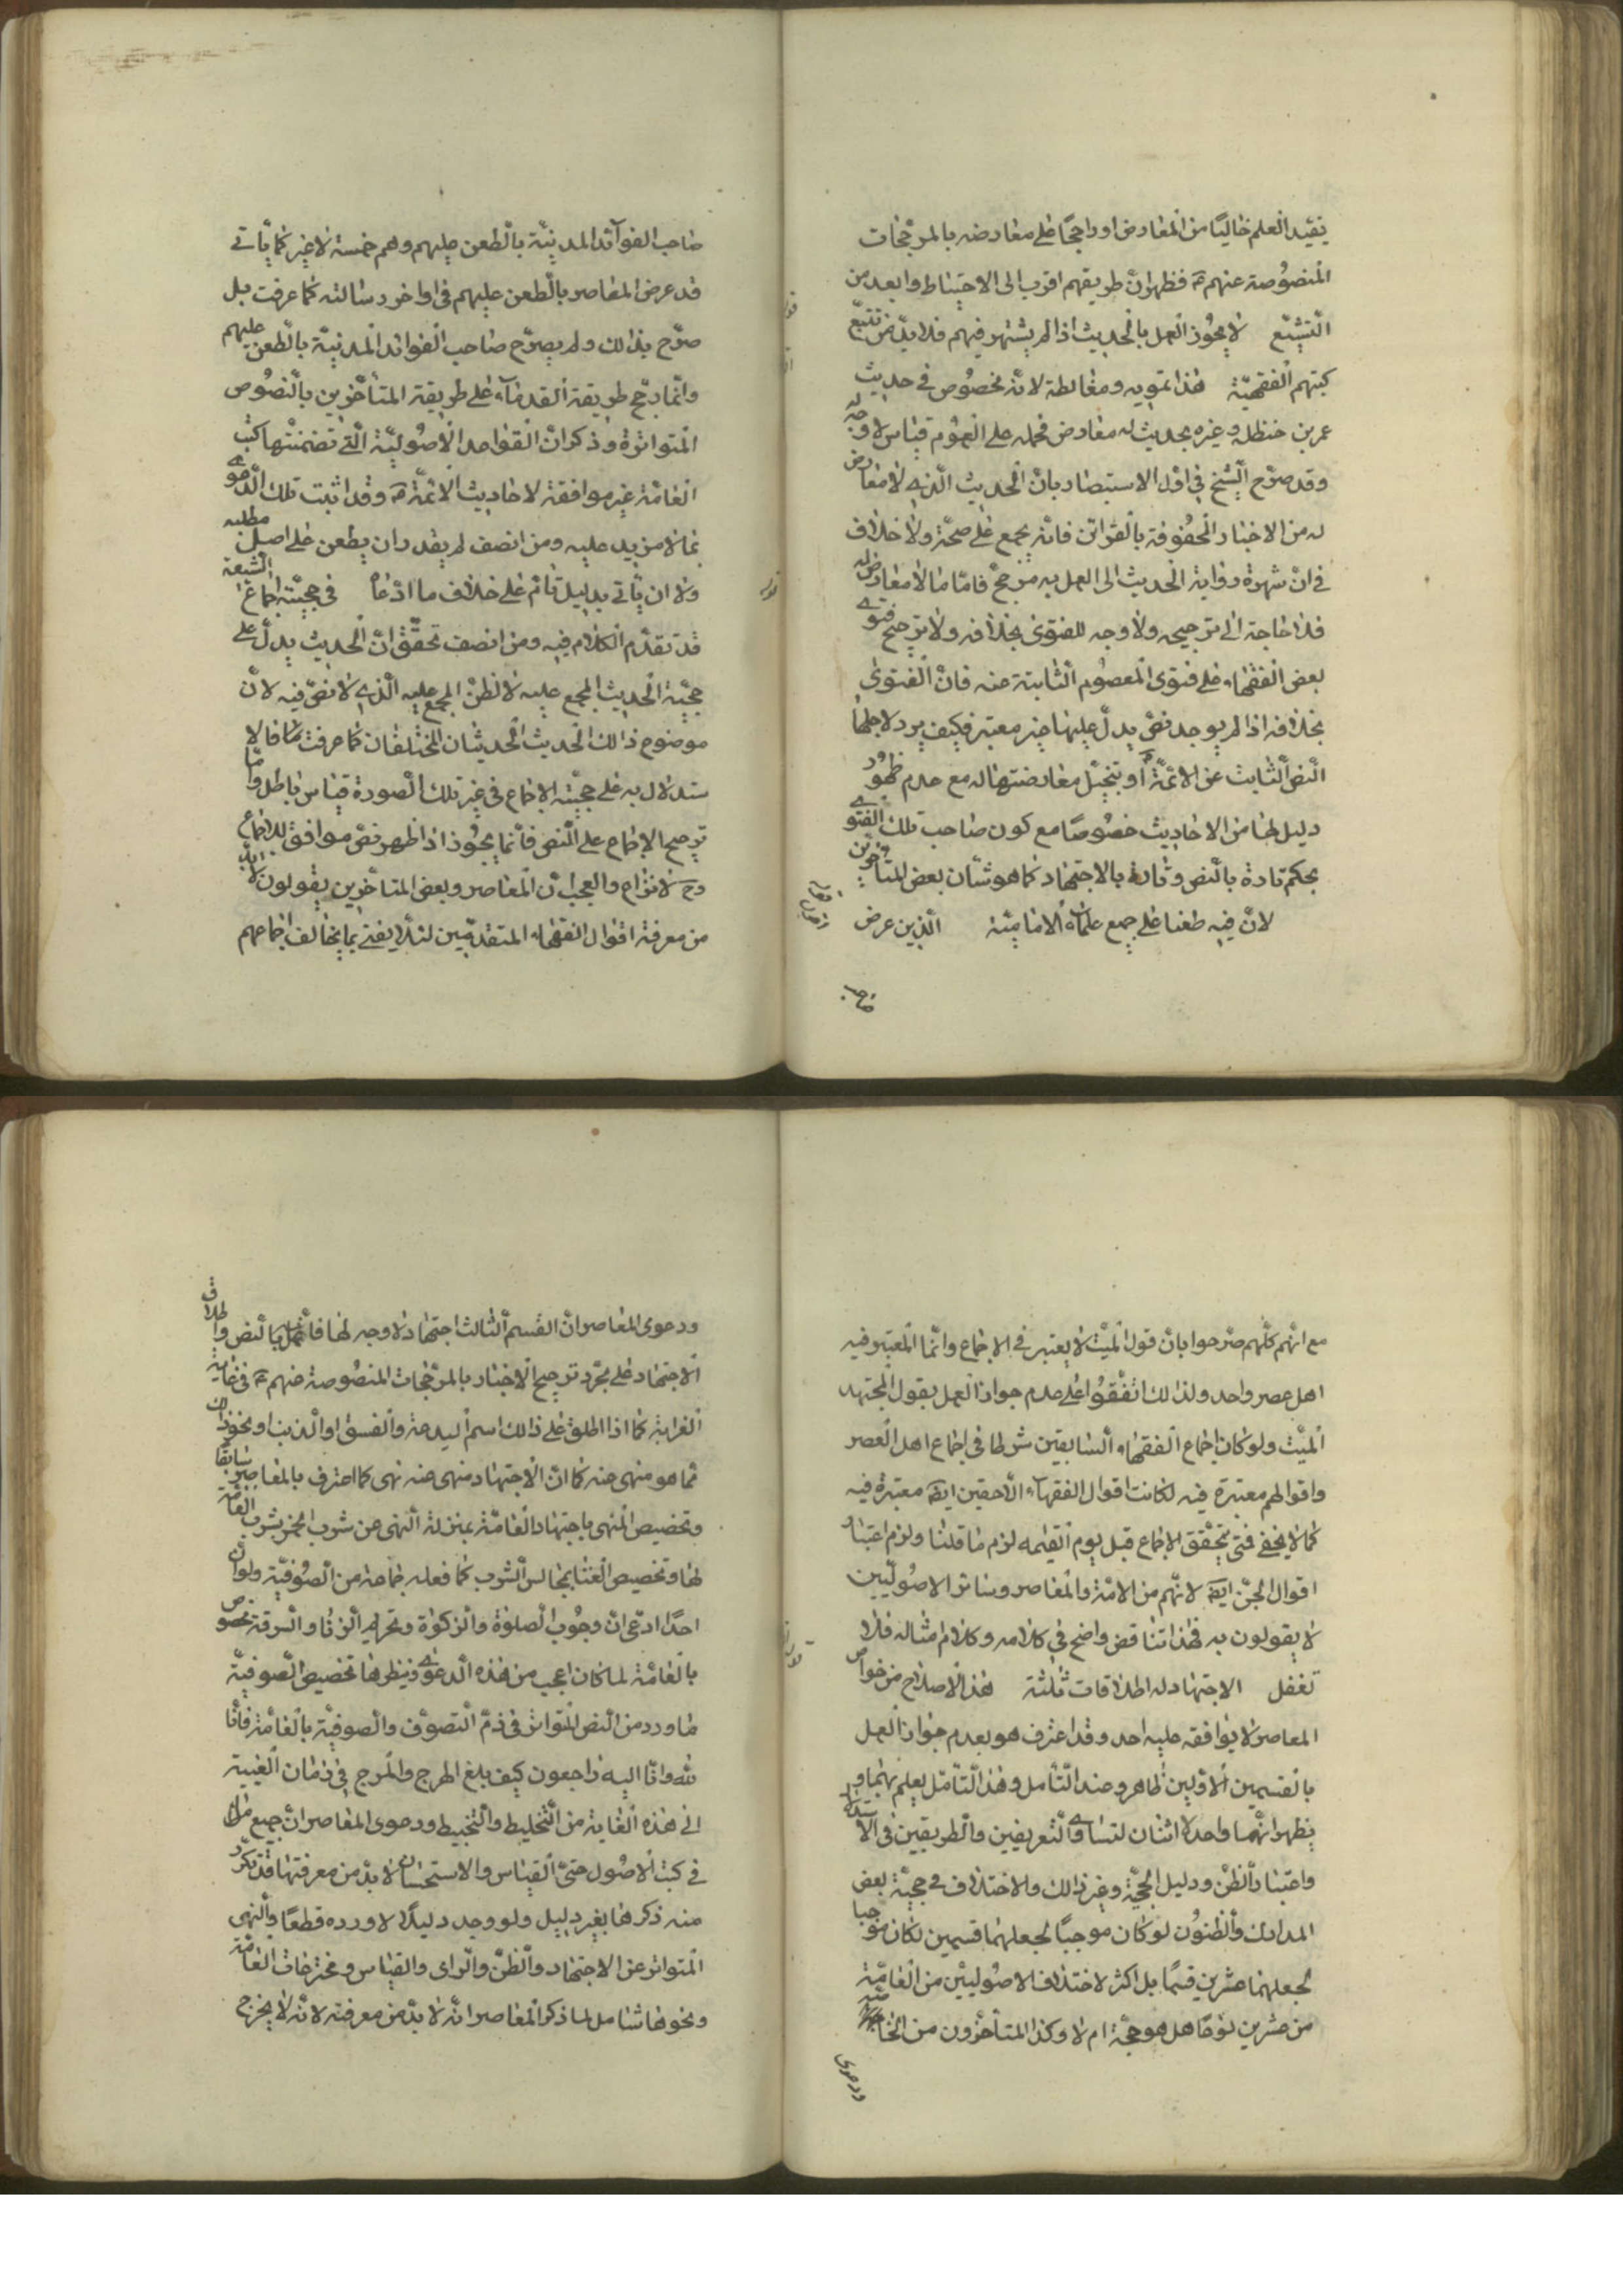 يفيد العلم خاليًا من المعارض او راجحًا على معارضه بالمرجّحات
المنصُوصة عنهم ع فظهر انّ طريقهم اقرب الى الاحتياط وابعد من
التشيّع لا يجُوز العمل بالحديث اذا لم يشتهر فيهم فلا بدّ من تتبّع
كتبهم الفقهيّة هذا تمويه ومغالطة لانّه مخصُوص في حديث
عمر بن حنظلة وغيره بحديث له معارض فحمله على العمُوم قياس لا وجه له
وقد صرّح الشيخ في اوّل الاستبصار بانّ الحديث الّذي لا معارض
له من الاخبار المحفُوفة بالقرائن فانّه يجمع على صحّته ولا خلاف
في انّ شهرة رواية الحديث الى العمل به مرجّح فامّا ما لا معارض له
فلا حاجة الى ترجيحه ولا وجه للفتوى بخلافه ولا ترجيح فتوى
بعض الفقهاء على فتوى المعصُوم الثابتة عنه فانّ الفتوى
بخلافه اذا لم يوجد نصّ يدلّ عليها غير معتبر فكيف يرد لاجلها
النصّ الثابت عن الائمّة ع او يتخيّل معارضتها له مع عدم ظهُور
دليل لها من الاحاديث خصُوصًا مع كون صاحب تلك الفتوى
يحكم تارة بالنصّ وتارة بالاجتهاد كما هو شأن بعض المتأخّرين
لانّ فيه طعنا على جمع علماء الاماميّة الّذين عرض
صاحب
صاحب الفوائد المدنيّة بالطعن عليهم وهم خمسة لا غير كما يأتي
قد عرض المعاصر بالطعن عليهم في اواخر رسالته كما عرفت بل
صرّح بذلك ولم يصرّح صاحب الفوائد المدنيّة بالطعن عليهم
وانّما رجّح طريقة القدماء على طريقة المتأخّرين بالنصُوص
المتواترة وذكر انّ القواعد الاصُوليّة الّتي تضمنتها كتب
العامّة غير موافقة لاحاديث الائمّة ع وقد اثبت تلك الدّعوى
بما لا مزيد عليه ومن انصف لم يقدر ان يطعن على اصل مطلبه
ولا ان يأتي بدليل تامّ على خلاف ما ادّعاه في حجيّة اجماع الشيعة
قد تقدّم الكلام فيه ومن انصف تحقّق انّ الحديث يدلّ على
حجيّة الحديث المجمع عليه لا الظنّ المجمع عليه الّذي لا نصّ فيه لانّ
موضوع ذلك الحديث الحديثان المختلفان كما عرفت سابقا فالا
ستدلال به على حجيّة الاجماع في غير تلك الصورة قياس باطل وامّا
ترجيح الاجماع على النصّ فانّما يجُوز اذا ظهر نصّ موافق للاجماع
وح لا نزاع والعجب انّ المعاصر وبعض المتأخّرين يقولون لا بدّ
من معرفة اقوال الفقهاء المتقدمّين لئلّا يفتى بما يخالف اجماعهم
مع انّهم كلّهم صرّحوا بانّ قول الميّت لا يعتبر في الاجماع وانّما المعتبر فيه
اهل عصر واحد ولذلك اتّفقُوا على عدم جواز العمل بقول المجتهد
الميّت ولو كان اجماع الفقهاء السابقين شرطا في اجماع اهل العصر
واقوالهم معتبرة فيه لكانت اقوال الفقهاء الّاحقين ايضا معتبرة فيه
كما لا يخفى فمتى يتحقّق الاجماع قبل يوم القيمه لزم ما قلنا ولزم اعتبار
اقوال الجنّ ايضا لانّهم من الامّة والمعاصر وسائر الاصُوليّين
لا يقولون به فهذا تناقض واضح في كلامه وكلام امثاله فلا
تغفل الاجتهاد له اطلاقات ثلثة هذا الاصلاح من خواصّ
المعاصر لا يوافقه عليه احد وقد اعترف هو بعدم جواز العمل
بالقسمين الاوّلين ظاهر وعند التأمل وهذا التأمّل يعلم بهما و
يظهر انّهما واحد لا اثنان لتساوى التعريفين والطريقين في الاستدلال
واعتبار الظنّ ودليل الحجيّة وغير ذلك والاختلاف في حجيّة بعض
المدارك والظنُون لو كان موجبًا لجعلهما قسمين لكان موجبا
لجعلهما عشرين قسمًا بل اكثر لاختلاف الاصُوليّين من العامّة
من عشرين نوعًا هل هو حجّة ام لا وكذا المتأخّرون من الخاصّة
ودعوى
ودعوى المعاصر انّ القسم الثالث اجتهاد لا وجه لها فانّه عمل بالنصّ واطلاق
الاجتهاد على مجرّد ترجيح الاخبار بالمرجّحات المنصُوصة عنهم ع في غاية
الغرابة كما اذا اطلق على ذلك اسم البدعة والفسق او الذنب او نحو ذلك
ممّا هو منهى عنه كما انّ الاجتهاد منهى عنه نهى كما اعترف بالمعاصر سابقًا
وتخصيص المنهى باجتهاد العامّة بمنزلة النهى عن شرب الخمر بشرب العامّة
لها وتخصيص الغنا بمجالس الشرب كما فعله جماعة من الصُوفيّة ولو انّ
احدًا ادّعى انّ وجُوب الصلوة والزكوة وتحريم الزنا والسرقة مخصُوص
بالعامّة لما كان اعجب من هذه الدعوى ونظيرها تخصيص الصوفيّة
ما ورد من النصّ المتواتر في ذمّ التصوّف والصوفيّة بالعامّة فانّا
لله وانّا اليه راجعون كيف بلغ الهرج والمرج في زمان الغيبة
الى هذه الغاية من التخليط والتخبيط ودعوى المعاصر انّ جميع ما
في كتب الاصُول حتّى القياس والاستحسان لا بدّ من معرفتها قد تكرّر
منه ذكرها بغير دليل ولو وجد دليلًا لاورده قطعًا والنهى
المتواتر عن الاجتهاد والظنّ والراى والقياس ومخترعات العامّة
ونحوها شامل لما ذكر المعاصر انّه لا بدّ من معرفته لانّه لا يخرج